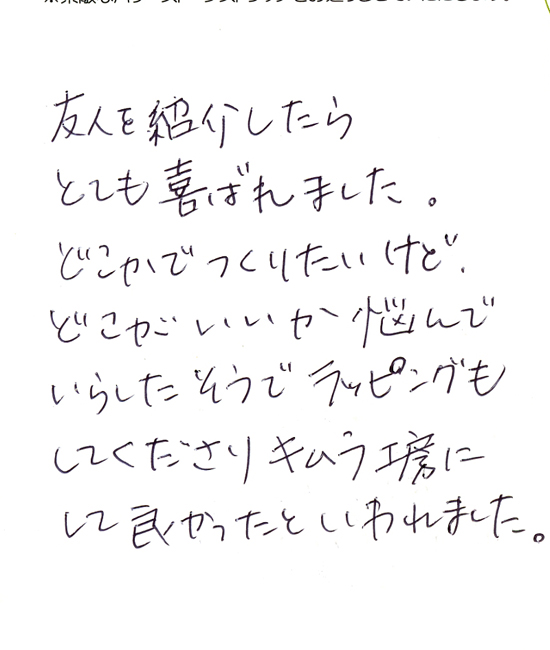 友人を紹介したら
とても喜ばれました。
どこかでつくりたいけど、
どこがいいか悩んで
いらしたそうでラッピングも
してくださりキムラ工房に
して良かったといわれました。